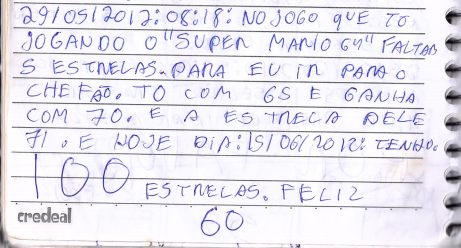 29/05/2012:08:18: NO JOGO QUE TO
JOGANDO O "SUPER MARIO 64" FALTAM
5 ESTRELAS. PARA EU IR PARA O
CHEFÃO. TO COM 65 E GANHA
COM 70. E A ESTRELA DELE
71. E HOJE DIA: 15/06/2012: TENHO.
100 ESTRELAS. FELIZ
credeal
60